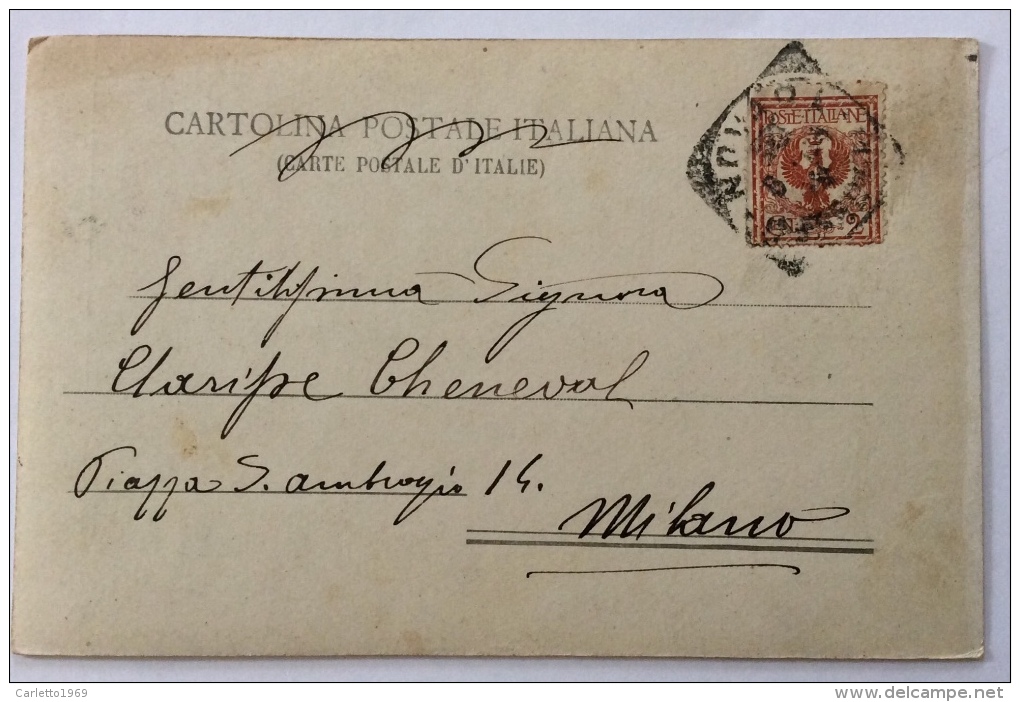 CARTOLINA POSTALE ITALIANA
(CARTE POSTALE D'ITALIE)
POSTE·ITALIANE
2
Gentilissima Signora
Clarisse Cheneval
Piazza S. Ambrogio 14.
Milano
Carletto1969
delcampe.net